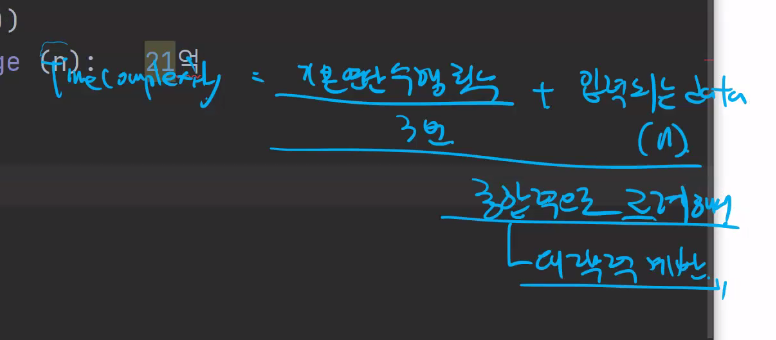 )
ge (n): 21억
Time Complexity = 기본연산 수행 횟수 + 입력되는 data
3번 (n)
종합적으로 고려해서
대략적 계산